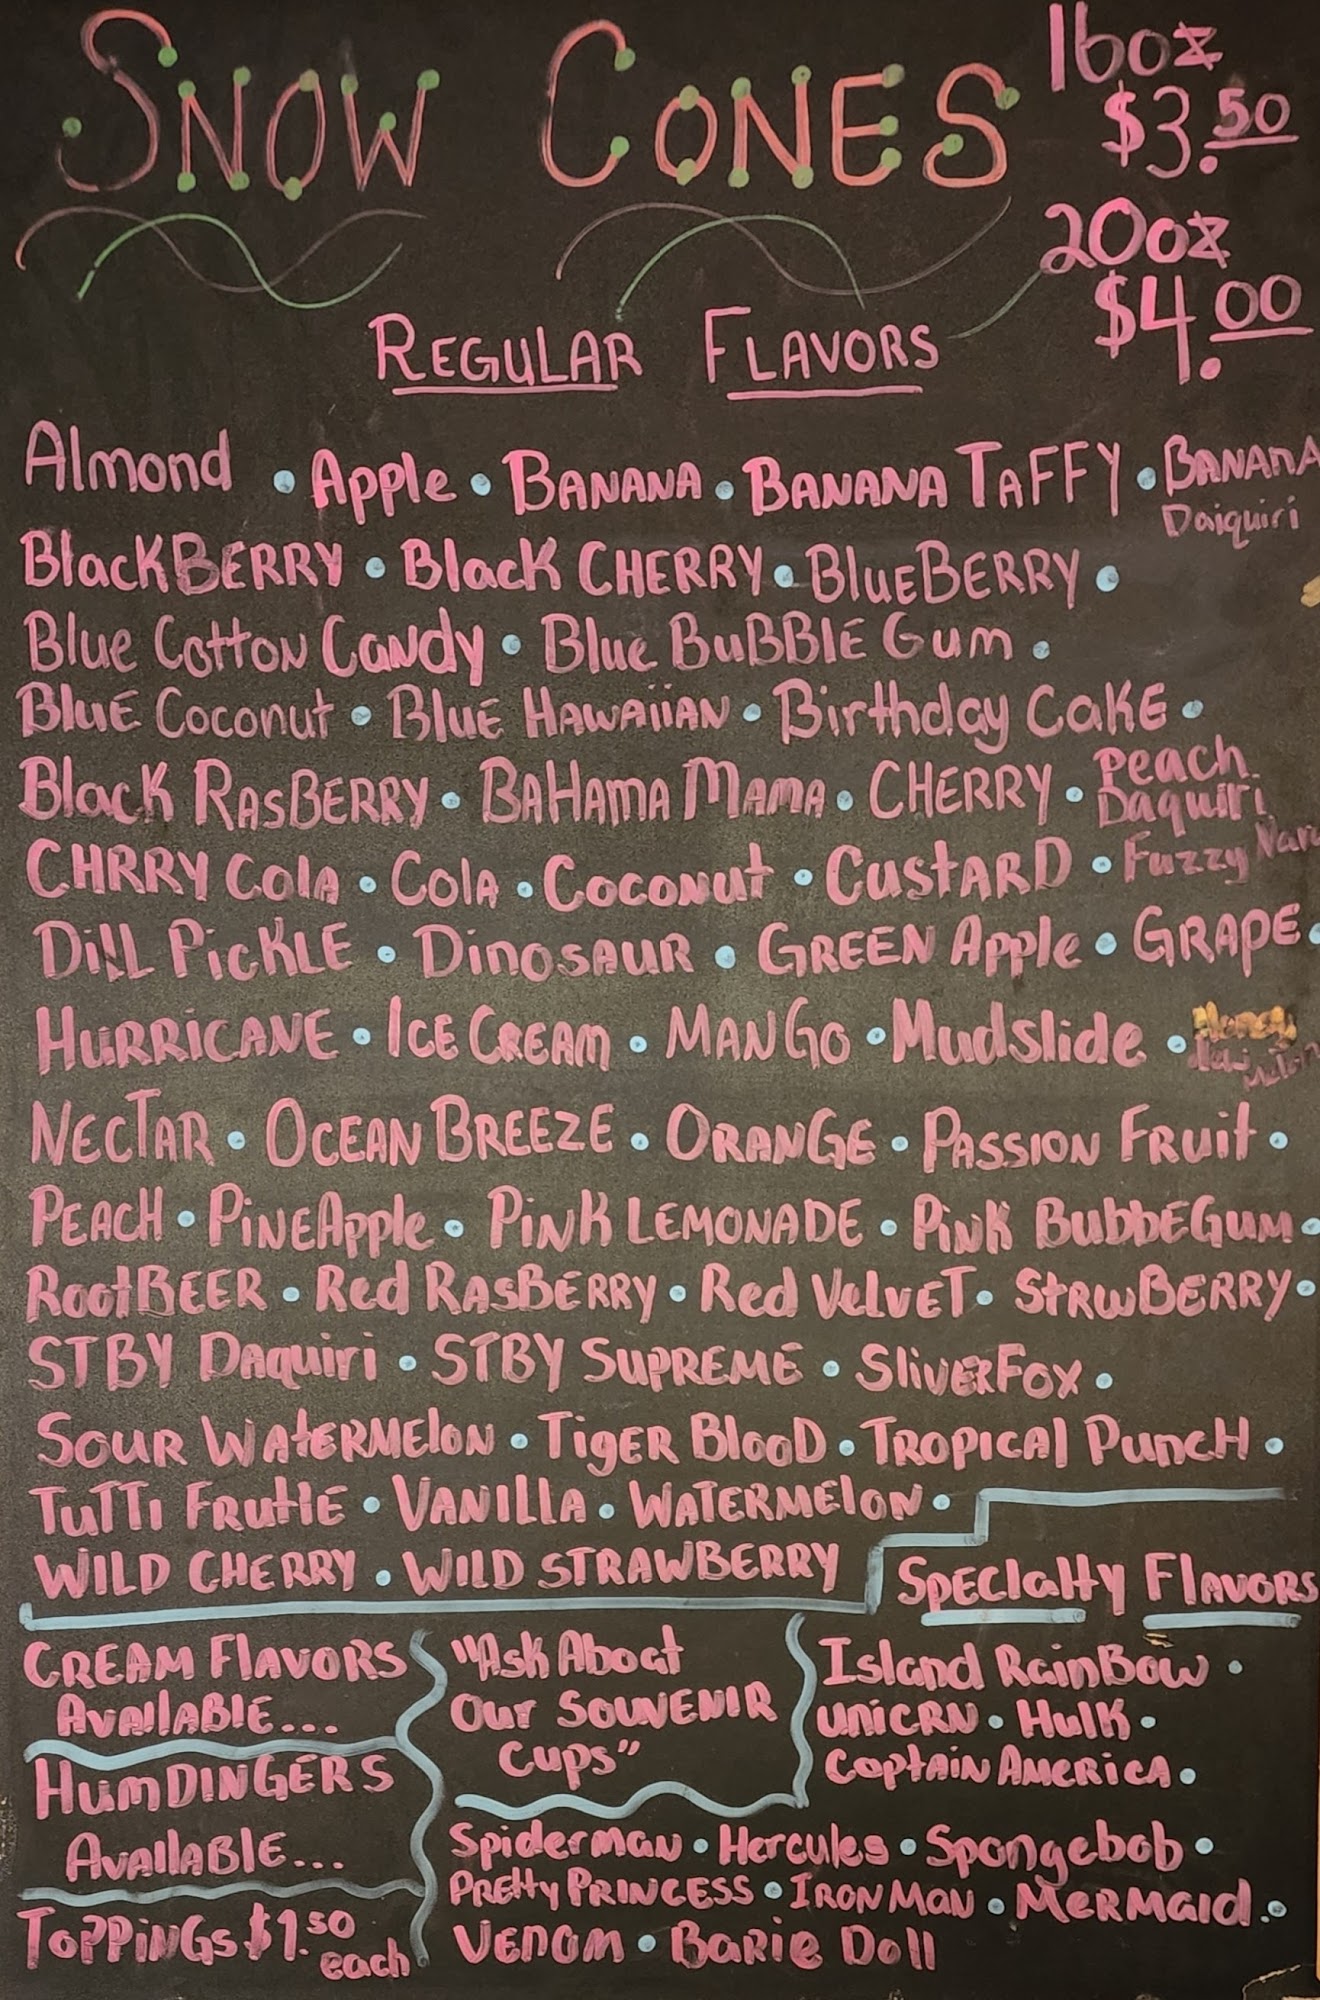 SNOW CONES
16oz
$3.50
20oz
$4.00
REGULAR FLAVORS
Almond • Apple • BANANA • BANANA TAFFY • BANANA
Daiquiri
BlackBERRY • Black CHERRY • BlueBERRY •
Blue Cotton Candy • Blue BuBBlE Gum •
BluE Coconut • BluE HAWAiiAN • Birthday CaKE •
Black RASBERRY • BAHAMA MAMA • CHERRY • Peach
Daquiri
CHRRY Cola • Cola • Coconut • CustARD • Fuzzy
Dill PicKLE • Dinosaur • GREEN Apple • GRAPE •
HURRICANE • ICE CREAM • MANGO • Mudslide •
NECTAR • OCEAN BREEZE • ORANGE • PASSION FRuit •
PEACH • PiNEApple • PiNK LEMONADE • PiNK BubbEGum •
RootBEER • Red RASBERRY • Red VelvET • StRwBERRY •
STBY Daquiri • STBY SUPREME • SliverFox •
SOUR WAtERMElON • TiGER BlooD • TROPICAl PuncH •
TuTTi FRuttiE • VANillA • WATERMElON •
WILD CHERRY • WILD STRAWBERRY
SpECIalty FlAVORS
CREAM FlAVORS
AVAilABlE...
HumDINGERS
AVAilABlE...
ToPPiNGs $1.50
each
"Ask About
Our SOUVENIR
Cups"
Island RainBow •
uNiCRN • Hulk •
CaptAiN AMERiCA •
Spiderman • Hercules • Spongebob •
PREtty PRINCESS • IRON MAN • MERMaid •
VENOM • BaRie Doll